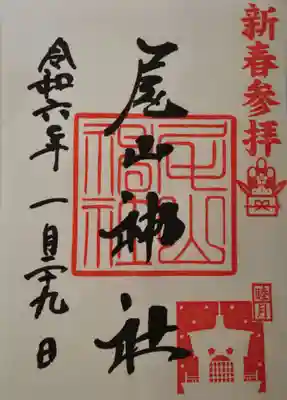 新春参拝
睦月
尾山神社
尾山神社
令和六年 一月二十九日